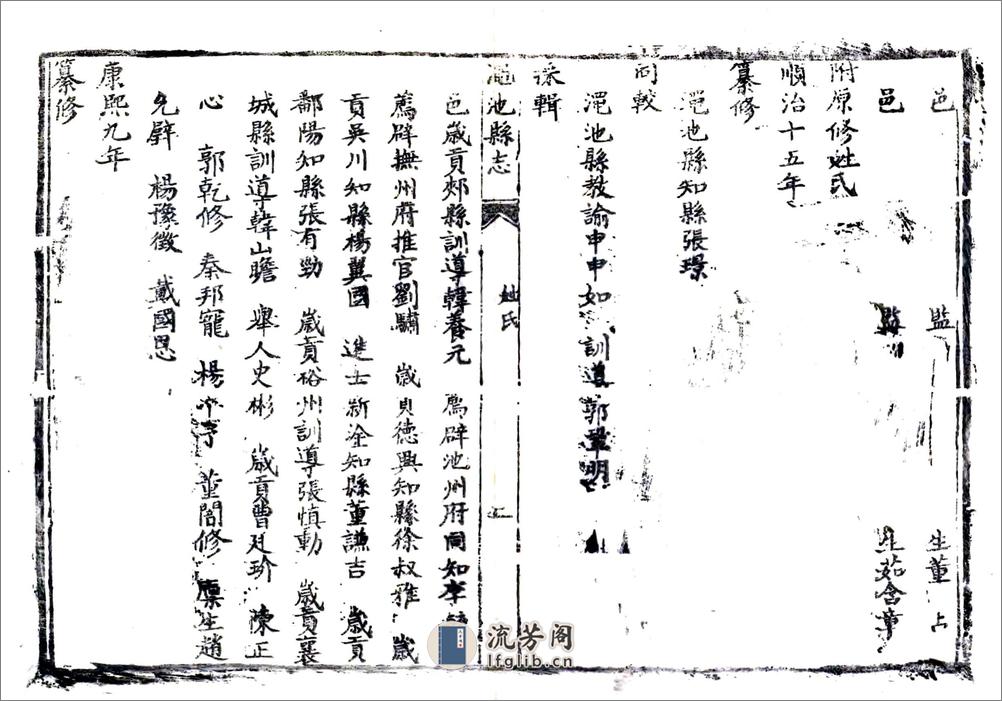 邑 監 生董 占
邑 監 生茹含章
附原修姓氏
順治十五年
纂修
澠池縣知縣張璟
同較
澠池縣教諭申申如 訓導郭鞏明
採輯
澠池縣志 姓氏
邑歲貢郟縣訓導韓養元 薦辟池州府同知李
薦辟撫州府推官劉驌 歲貢德興知縣徐叔雅 歲
貢吳川知縣楊翼國 進士新淦知縣董謙吉 歲貢
鄱陽知縣張有勁 歲貢裕州訓導張慎動 歲貢襄
城縣訓導韓山瞻 舉人史彬 歲貢曹廷玠 陳正
心 郭乾修 秦邦寵 楊 董閣修 廩生趙
允辟 楊豫徵 戴國恩
康熙九年
纂修
流芳阁
lfglib.cn